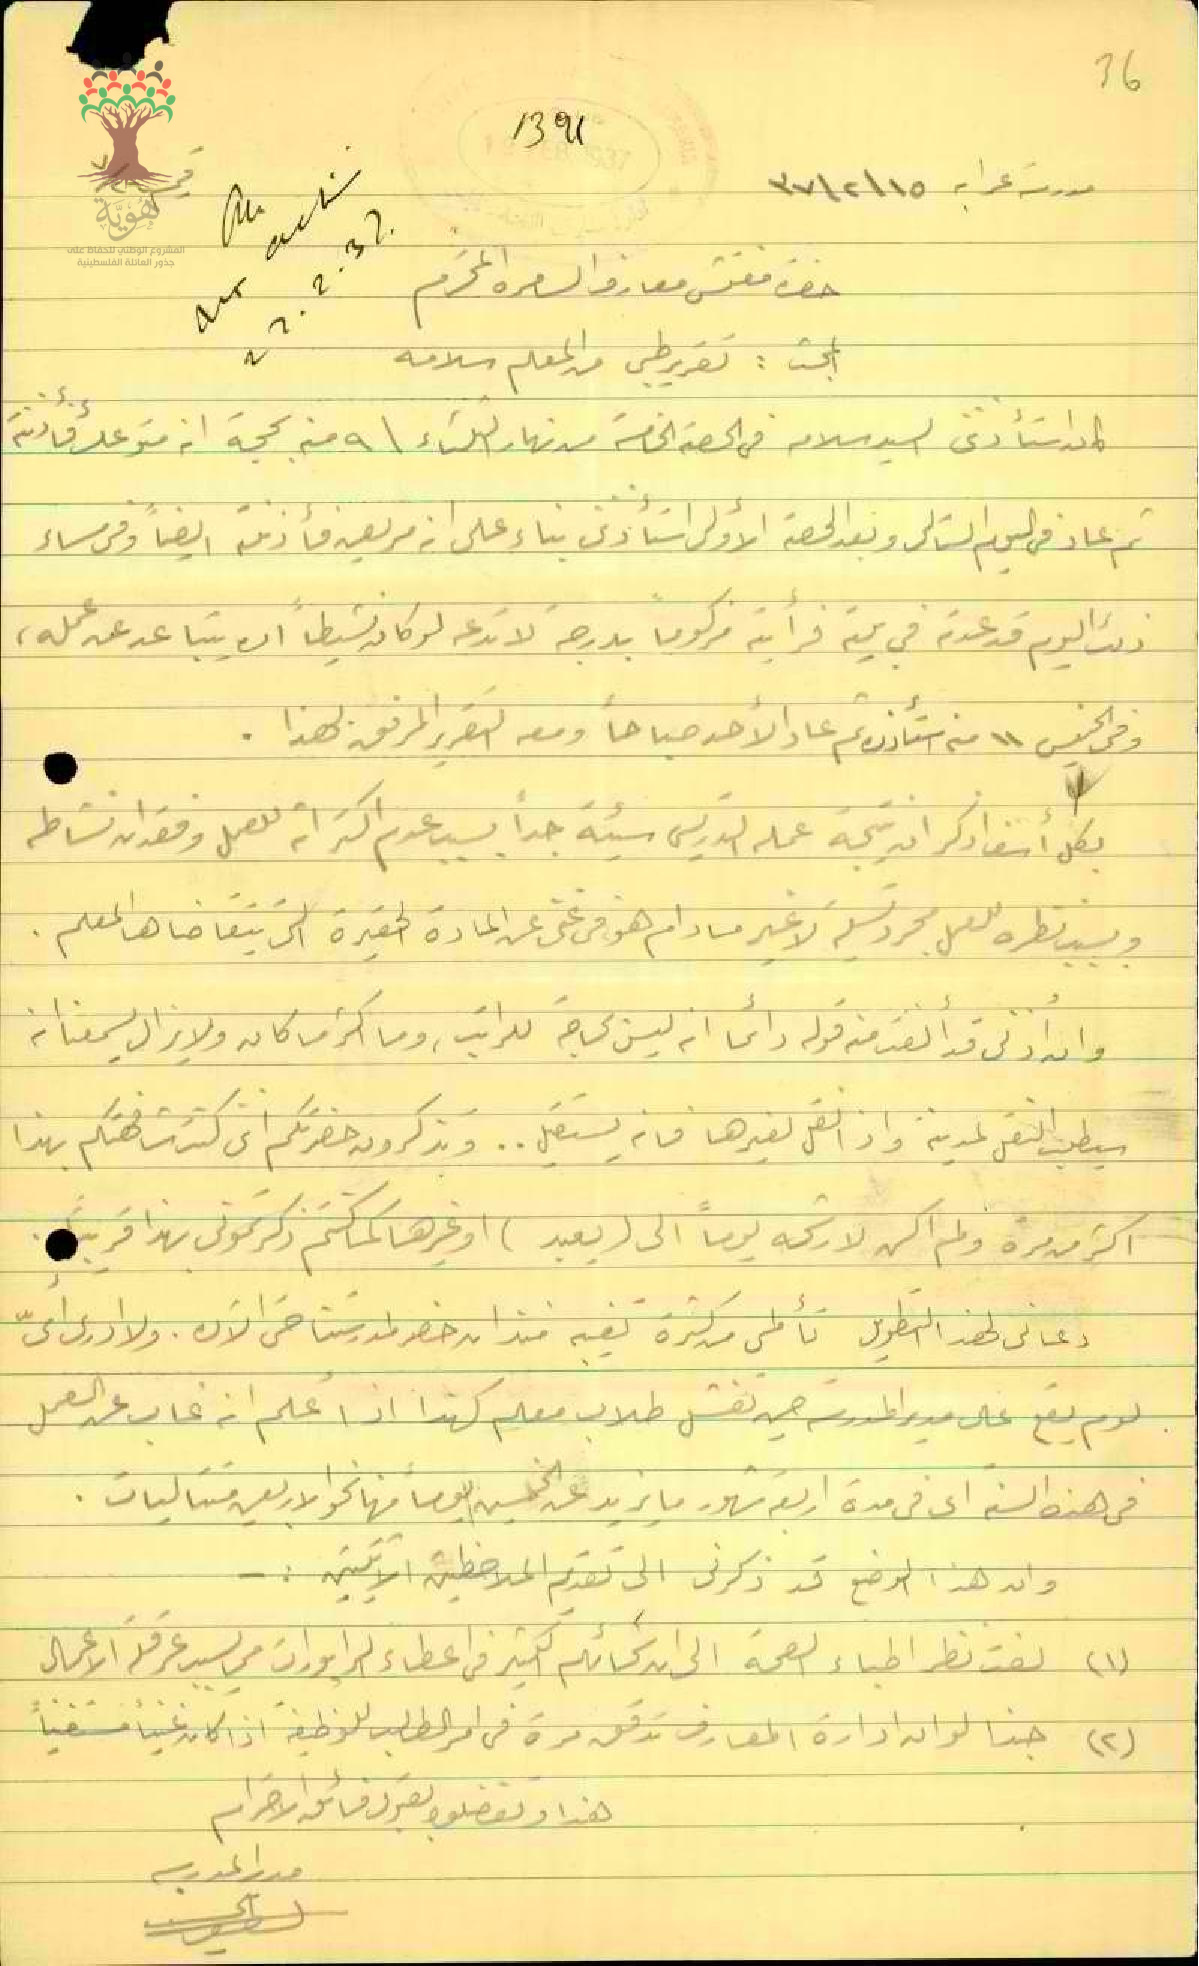 36
1391
مدرسة عرابه ١٥\٢\٣٧
No action
22.2.37.
هُوِيَّة
المشروع الوطني للحفاظ على
جذور العائلة الفلسطينية
حضرة مفتش معارف السامره المحترم
البحث : تقرير طبي من المعلم سلامه
كان استأذنني السيد سلامه في الحصة الخامسة من نهار الثلثاء ٩\ منه بحجة انه متوعك فأذنته
ثم عاد في اليوم التالي وبعد الحصة الأولى استأذنني بناء على انه مريض فأذنته ايضاً وفي مساء
ذلك اليوم قد عدته في بيته فرأيته مزكوماً بدرجة لا تدعه لو كان نشيطاً ان يتباعد عن عمله ،
وفي الخميس ١١ منه استأذن ثم عاد الأحد صباحاً ومعه التقرير المرفق بهذا .
بكل أسف اذكر ان نتيجة عمله التدريسي سيئة جداً بسبب عدم اكتراثه للعمل وفقدان نشاطه
وبسبب نظره للعمل مجرد تسلية لا غير ما دام هو في غنى عن المادة الحقيرة التي يتقاضاها المعلم .
وان أذني قد ألفت منه قوله دائما انه ليس بحاجة للراتب ، وما اكثر ما كان ولا يزال يسمعنا انه
سيطلب النقل لمدينة واذا نقل لغيرها فانه يستقيل .. وتذكرون حضرتكم انني كنت شافهتكم بهذا
اكثر من مرة ولم اكن لارشحه يوماً الى ( يعبد ) او غيرها كما كنتم ذكرتموني بهذا قريباً .
دعاني لهذا التطويل تألمي من كثرة تغيبه منذ ان حضر لمدرستنا حتى الآن . ولا ادري أيّ
لوم يقع على مدير المدرسة حين تفشل طلاب معلم كهذا اذا أعلم انه غاب عن العمل
في هذه السنة اي في مدة اربعة شهور ما يزيد عن الخمسين يوماً منها نحو الاربعين متتاليات .
وان هذا الوضع قد ذكرني الى تقديم الملاحظتين الآتيتين : -
(١) لفت نظر اطباء الصحة الى ان سخائهم الكثير في اعطاء الرابورات مما يسبب عرقلة الاعمال
(٢) حبذا لو ان ادارة المعارف تدقق مرة في امر الطالب للوظيفة اذا كان غنياً مستغنياً
هذا وتفضلوا بقبول فائق الاحترام
مدير المدرسة